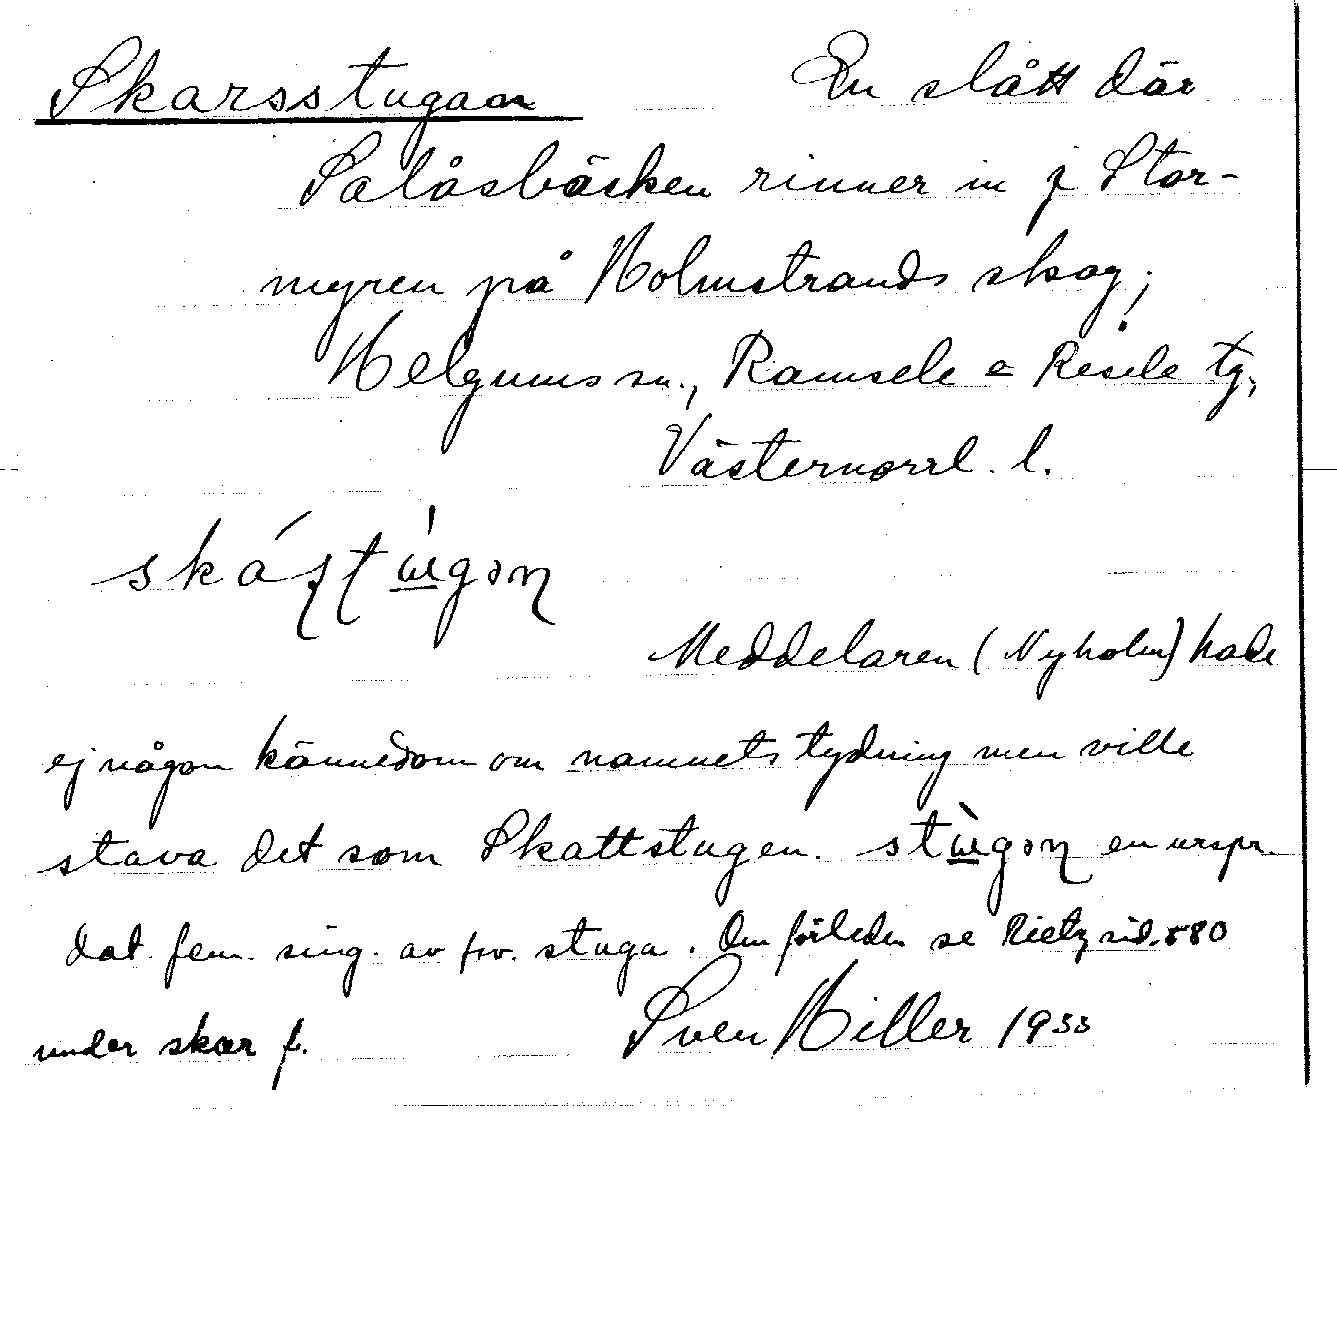 Skarsstugan En slått där
Salåsbäcken rinner in i Stor-
myren på Holmstrands skog;
Helgums sn., Ramsele o Resele tg,
Västernorrl. l.
Meddelaren (Nyholm) hade
ej någon kännedom om namnets tydning men ville
stava det som Skattstugen. en urspr.
dat. fem. sing. av fsv. stuga. Om förleden se Rietz sid. 580
under skar f. Sven Hiller 1933